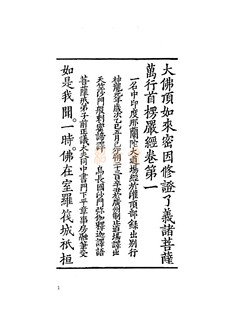 大佛頂如來密因修證了義諸菩薩
萬行首楞嚴經卷第一
一名中印度那蘭陀大道場經於灌頂部錄出別行
神龍元年歲次乙巳五月己卯朔二十三日辛丑於廣州制止道場譯出
天竺沙門般剌蜜諦譯　烏長國沙門彌伽釋迦譯語
菩薩戒弟子前正議大夫同中書門下平章事房融筆受
如是我聞。一時。佛在室羅筏城。祇桓
1